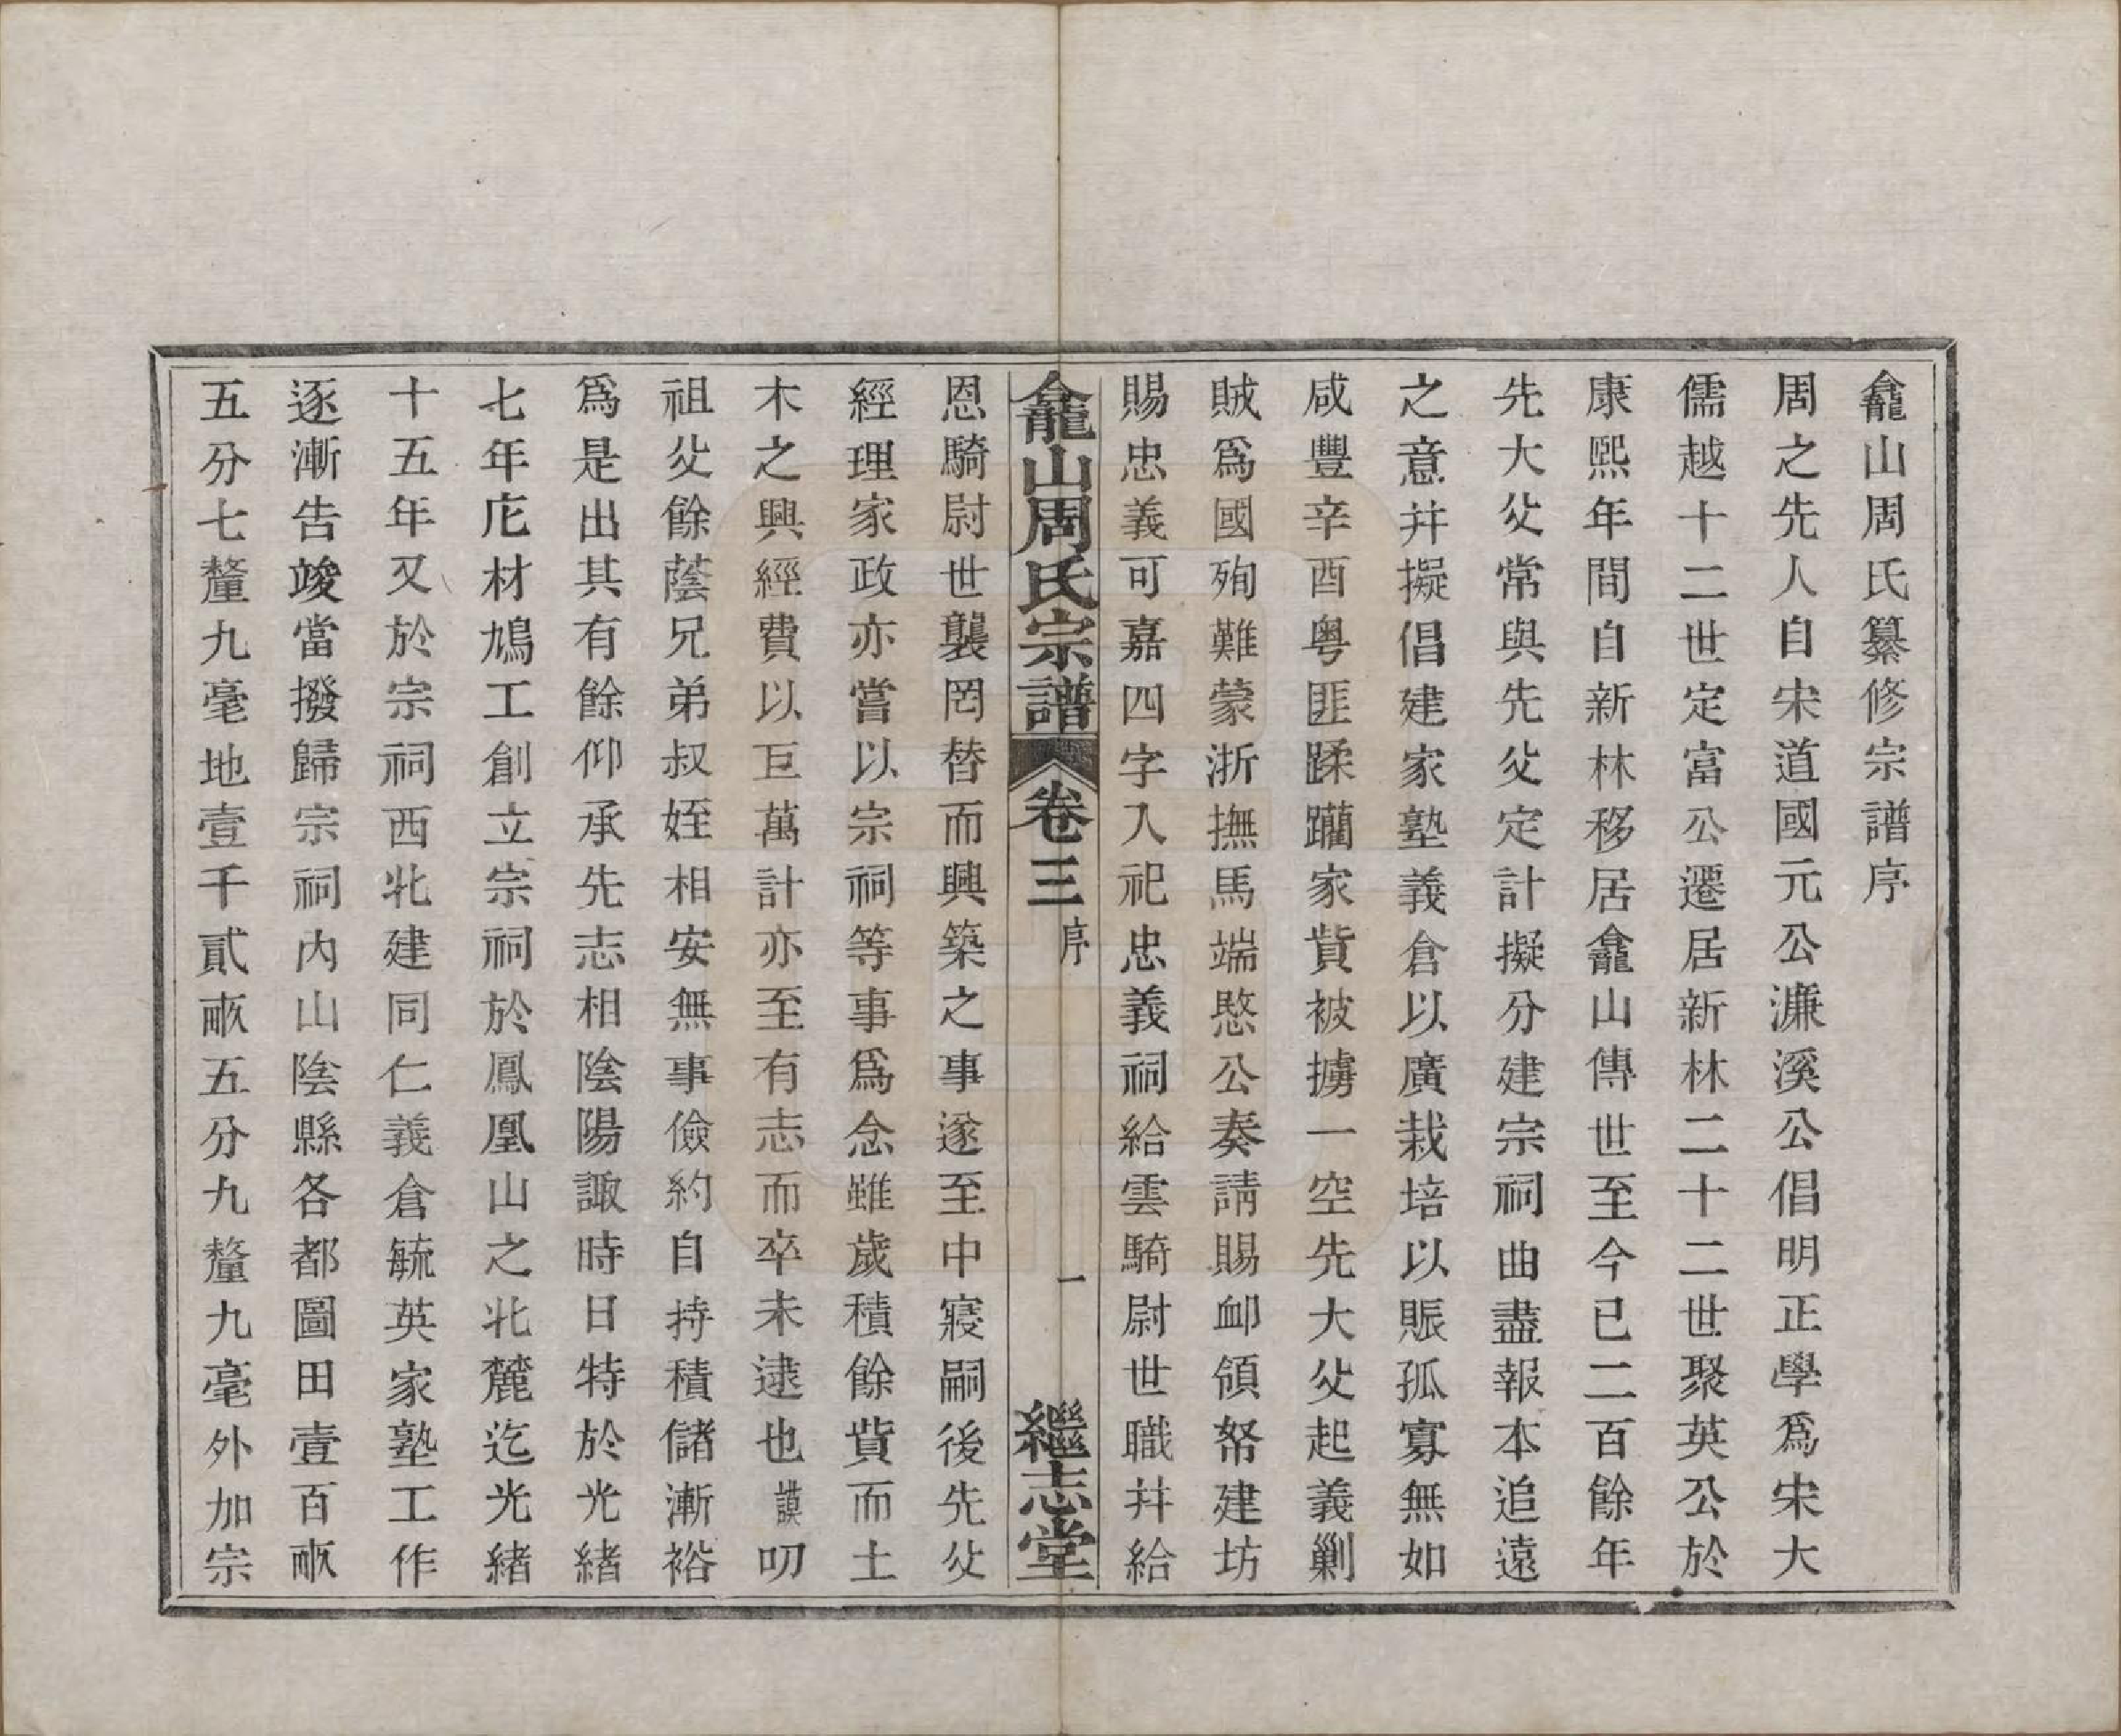 龕山周氏纂修宗譜序
周之先人自宋道國元公濂溪公倡明正學爲宋大
儒越十二世定富公遷居新林二十二世聚英公於
康熙年間自新林移居龕山傳世至今已二百餘年
先大父常與先父定計擬分建宗祠曲盡報本追遠
之意幷擬倡建家塾義倉以廣栽培以賑孤寡無如
咸豐辛酉粤匪蹂躪家貲被擄一空先大父起義剿
賊爲國殉難蒙浙撫馬端愍公奏請賜卹領帑建坊
賜忠義可嘉四字入祀忠義祠給雲騎尉世職幷給
龕山周氏宗譜 卷三 序 一 繼志堂
恩騎尉世襲罔替而興築之事遂至中寢嗣後先父
經理家政亦嘗以宗祠等事爲念雖歲積餘貲而土
木之興經費以巨萬計亦至有志而卒未逮也謨叨
祖父餘蔭兄弟叔姪相安無事儉約自持積儲漸裕
爲是出其有餘仰承先志相陰陽諏時日特於光緒
七年庀材鳩工創立宗祠於鳳凰山之北麓迄光緒
十五年又於宗祠西北建同仁義倉毓英家塾工作
逐漸告竣當撥歸宗祠內山陰縣各都圖田壹百畝
五分七釐九毫地壹千貳畝五分九釐九毫外加宗